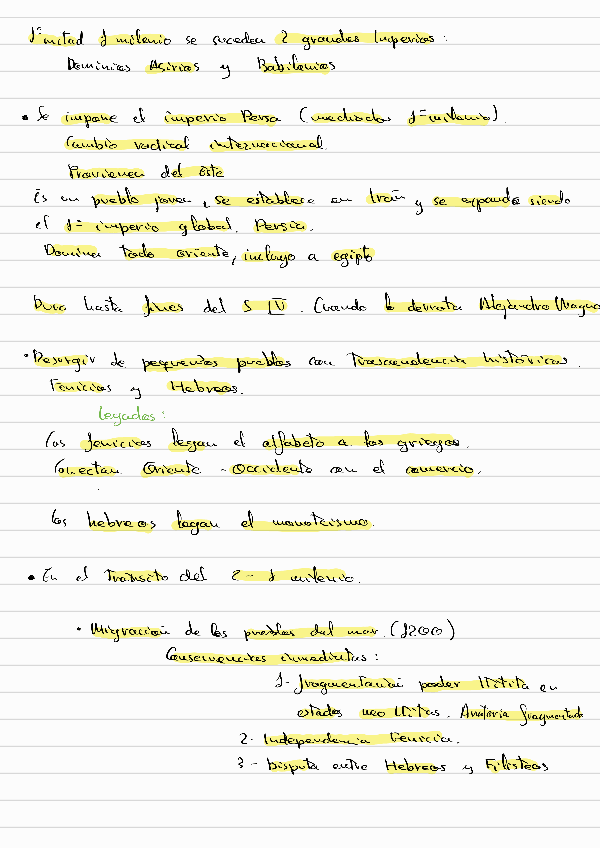 1ª mitad 1 milenio se suceden 2 grandes Imperios :
Dominios Asirios y Babilonios
• Se impone el imperio Persa (mediados 1º milenio).
Cambio radical internacional
Provienen del este
Es un pueblo joven, se establece en Irán y se expande siendo
el 1º imperio global. Persia.
Domina todo oriente, incluyo a egipto
Dura hasta fines del S IV. Cuando lo derrota Alejandro Magno
• Resurgir de pequeños pueblos con Trascendencia históricas.
Fenicios y Hebreos.
Legados :
Los fenicios legan el alfabeto a los griegos.
Conectan Oriente - Occidente con el comercio.
Los hebreos legan el monoteismo.
• En el Transito del 2 - 1 milenio.
• Migración de los pueblos del mar. (1200)
Consecuencias inmediatas :
1- fragmentación poder Hitita en
estados neo Hititas. Anatolia fragmentada
2- Independencia Fenicia.
3- Disputa entre Hebreos y Filisteos